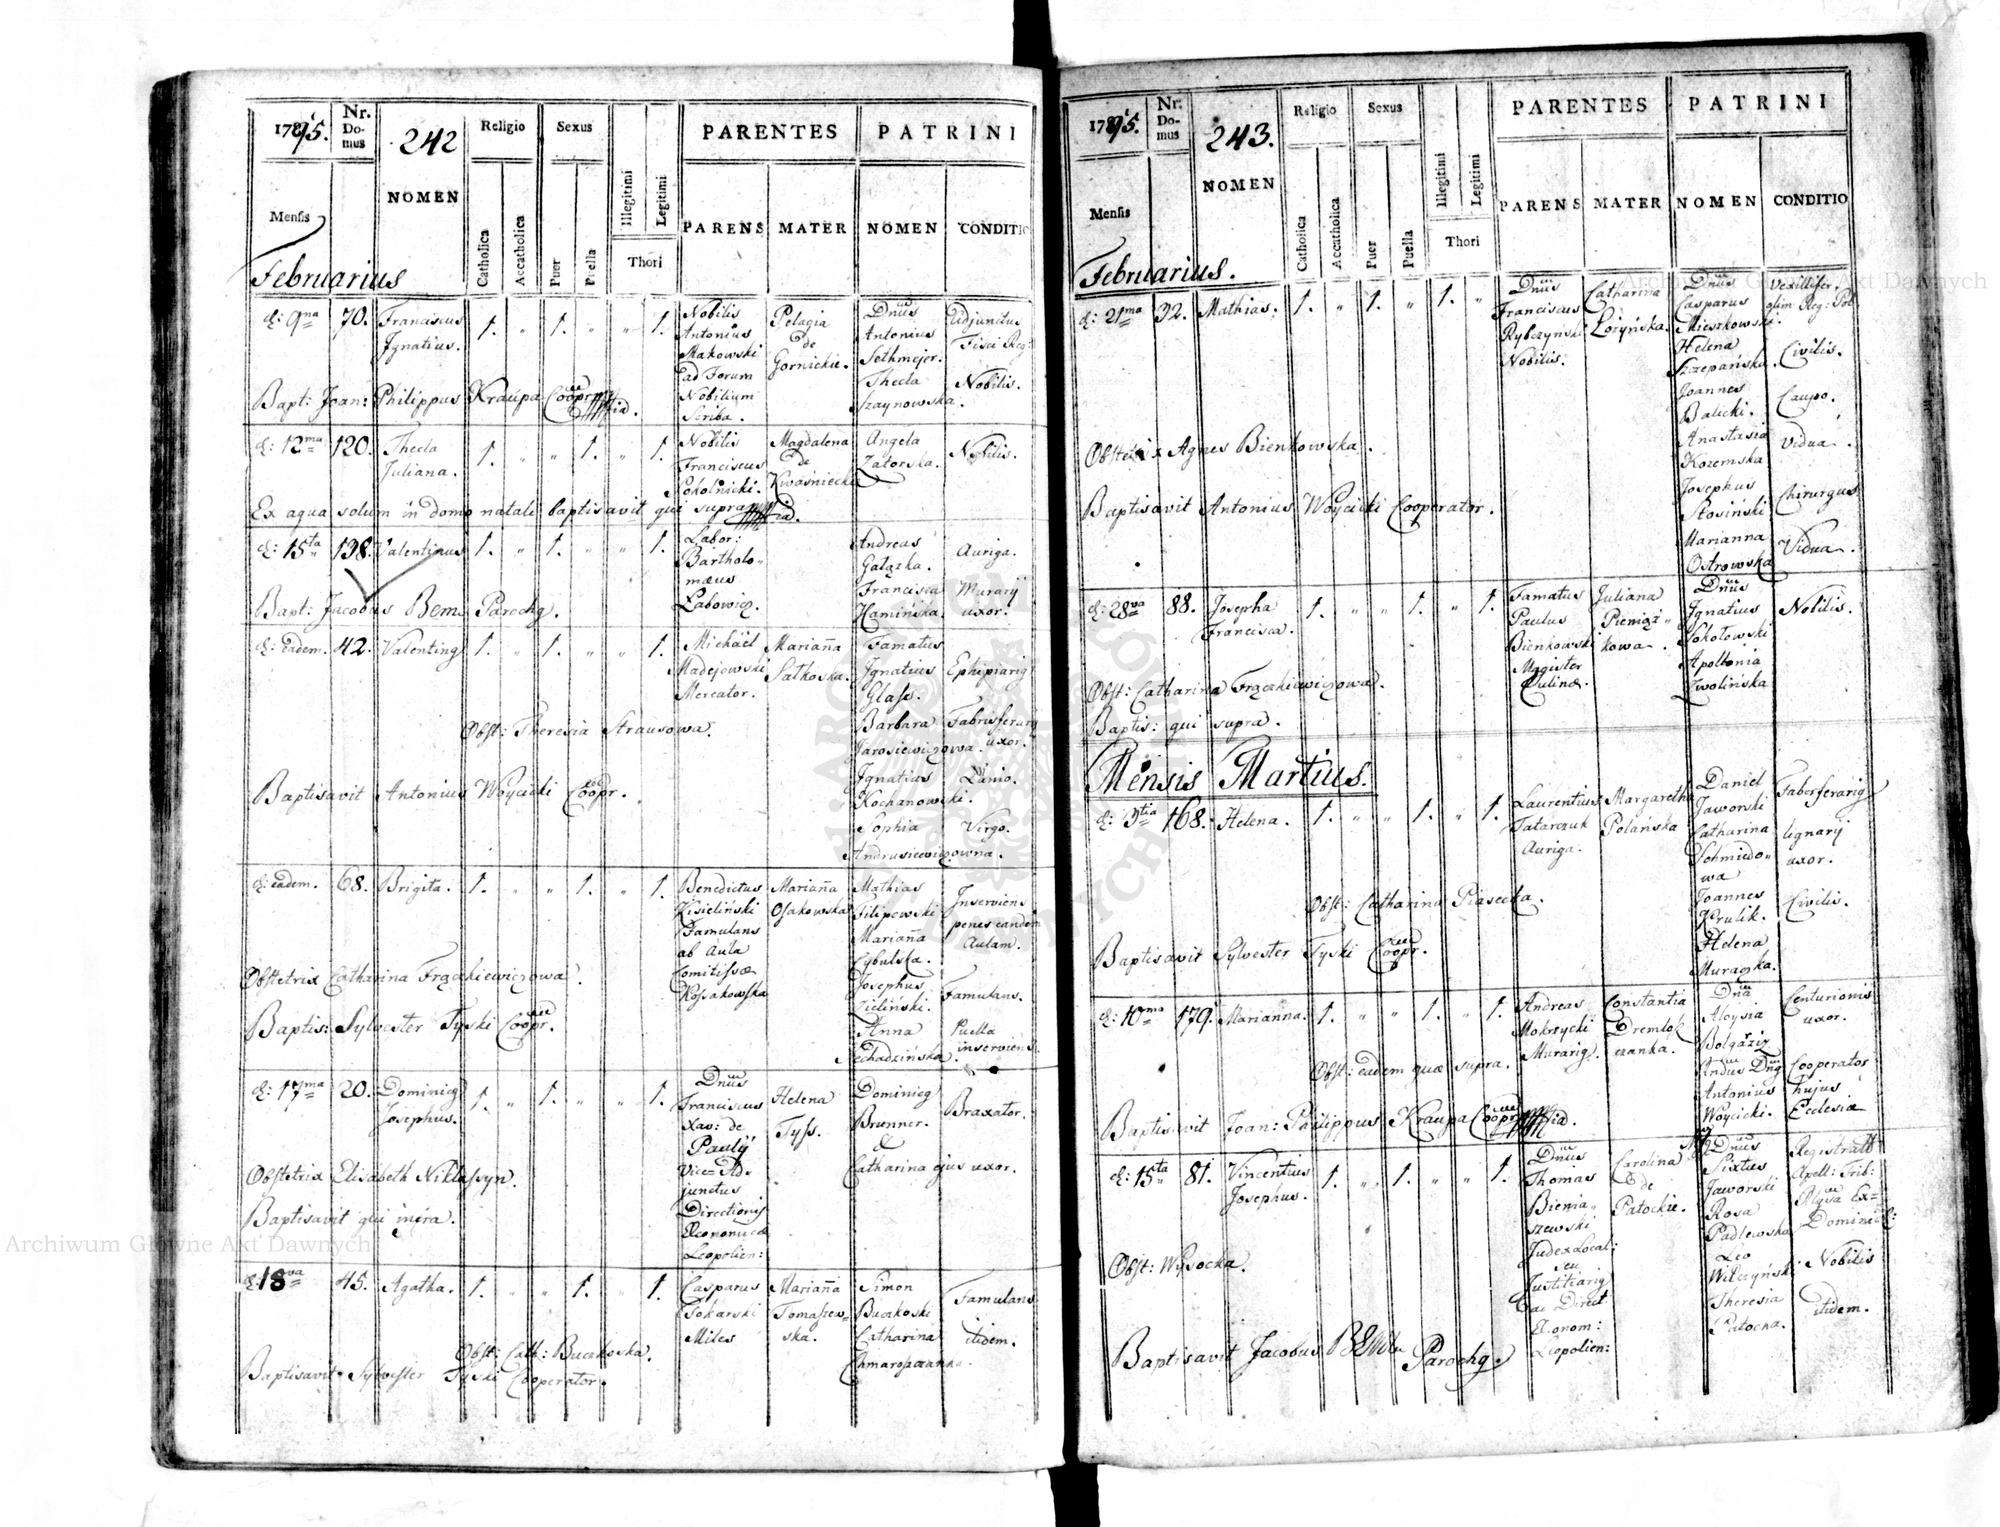 1795.
Nr. Domus
242
NOMEN
Religio
Sexus
Catholica
Accatholica
Puer
Puella
Illegitimi
Legitimi
Thori
PARENTES
PATRINI
PARENS
MATER
NOMEN
CONDITIO
Mensis
Februarius
d: 9na 70. Franciscus 1. " 1. " " 1. Nobilis Pelagia Dnus Adjunctus
Ignatius. Antonius de Antonius Fisci Reg:
Makowski Gornickie. Sethmejer.
ad Forum Thecla Nobilis.
Bapt: Joan: Philippus Kraupa Coopr Nobilium Szaynowska.
Scriba.
d: 12ma 120. Thecla 1. " " 1. " 1. Nobilis Magdalena Angela Nobilis.
Juliana. Franciscus de Zatorska.
Sokolnicki. Kwasnieckie
Ex aqua solum in domo natali baptisavit qui supra
d: 15ta 138. Valentinus 1. " 1. " " 1. Labor: Andreas Auriga.
Bartholo- Gałązka.
mæus Francisca Murarij
Bapt: Jacobus Bem. Parochg. Łabowicz. Kamińska. uxor.
d: eadem. 42. Valenting 1. " 1. " " 1. Michaël Marianna Famatus
Madejowski Satkoska. Ignatius Ephipiarig
Mercator. Glass.
Obst: Theresia Strausowa. Barbara Fabrisferarij
Jarosiewiczowa. uxor.
Ignatius Lanio.
Baptisavit Antonius Woycicki Coopr. Kochanowski.
Sophia Virgo.
Andrusiewiczowna.
d: eadem. 68. Brigita. 1. " " 1. " 1. Benedictus Marianna Mathias Inserviens
Kisieliński Osakowska Filipowski penes eandem
Famulans Marianna Aulam.
ab Aula Cybulska.
Obstetrix Catharina Frączkiewiczowa. Comitissæ Josephus Famulans.
Kossakowska Zieliński.
Baptis: Sylvester Tyski Coopr. Anna Puella
Zechadzińska. inserviens.
d: 17ma 20. Dominicg 1. " 1. " " 1. Dnus Helena Dominicg Braxator.
Josephus. Franciscus Tyss. Brunner.
Xav: de &
Pauly Catharina ejus uxor.
Obstetrix Elisabeth Niklassyn. Vice-Ad-
junctus
Baptisavit qui infra. Directionis
Œconomicæ
Leopolien:
d: 18va 45. Agatha. 1. " " 1. " 1. Casparus Marianna Simon Famulans
Tokarski Tomaszew- Buczkoski
Miles ska. Catharina itidem.
Obst: Cath: Buczkoska. Chmaroszczanka.
Baptisavit Sylvester Tyski Cooperator.
1795.
Nr. Domus
243.
NOMEN
Religio
Sexus
Catholica
Accatholica
Puer
Puella
Illegitimi
Legitimi
Thori
PARENTES
PATRINI
PARENS
MATER
NOMEN
CONDITIO
Mensis
Februarius.
d: 21ma 32. Mathias. 1. " 1. " 1. " Dnus Catharina Dnus Vexillifer.
Franciscus Łozyńska. Casparus olim Reg: Pol.
Rybczynski Mieszkowski.
Nobilis. Helena Civilis.
Szzepańska.
Joannes Caupo.
Balicki.
Obstetrix Agnes Bienkowska. Anastasia Vidua.
Kozemska
Josephus Chirurgus
Baptisavit Antonius Woycicki Cooperator. Słosiński
Marianna Vidua.
Ostrowska
d: 28va 88. Josepha 1. " " 1. " 1. Famatus Juliana Dnus Nobilis.
Francisca. Paulus Pieniąż- Ignatius
Bienkowski kowa. Sokołowski
Magister Apollonia
Obst: Catharina Frączkiewiczowa. Culinæ. Zwolińska
Baptis: qui supra.
Mensis Martius.
d: 3tia 168. Helena. 1. " " 1. " 1. Laurentius Margaretha Daniel Faberferarig
Tatarczuk Polańska Jaworski
Auriga. Catharina lignarij
Schmiedo- uxor.
wa
Obst: Catharina Piasecka. Joannes Civilis.
Krulik.
Baptisavit Sylvester Tyski Coopr. Helena
Muraszka.
d: 10ma 179. Marianna. 1. " " 1. " 1. Andreas Constantia Dna Centurionis
Mokrzycki Dremlok- Aloysia uxor.
Murarig. czanka. Bolgáziz
Obst: eadem quæ supra. Andus Dng Cooperator
Antonius hujus
Baptisavit Joan: Philippus Kraupa Coopr Woycicki. Ecclesiæ
d: 15ta 81. Vincentius 1. " 1. " " 1. Dnus Carolina Dnus Registratt
Josephus. Thomas de Sixtus Apell: Trib:
Bienia- Patockie. Jaworski
szewski Rosa
Judex Local: Padlewska
Obst: Wysocka. seu Leo Nobilis
Justitiarig Wilczyński
ac Direct Theresia itidem.
Œconom: Patocka.
Baptisavit Jacobus BEM Parochg. Leopolien:
Archiwum Główne Akt Dawnych
Archiwum Główne Akt Dawnych